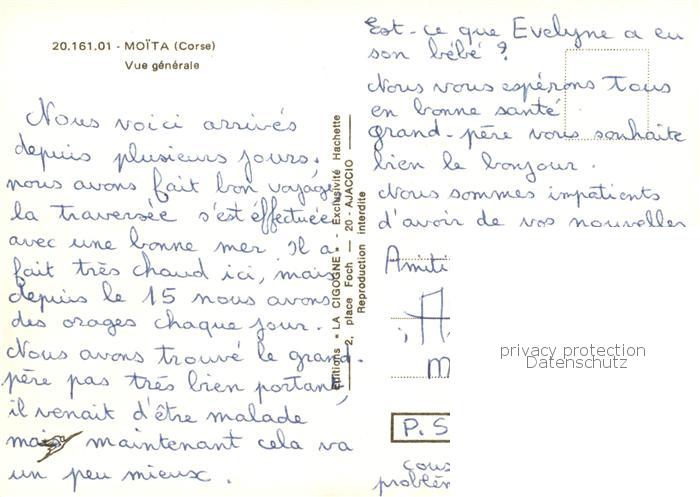 20.161.01 - MOÏTA (Corse)
Vue générale
Nous voici arrivés
depuis plusieurs jours,
nous avons fait bon voyage
la traversée s'est éffectuée
avec une bonne mer. Il a
fait très chaud ici, mais
depuis le 15 nous avons
des orages chaque jour.
Nous avons trouvé le grand-
père pas très bien portant,
il venait d'être malade
mais maintenant cela va
un peu mieux.
Editions "LA CIGOGNE" - Exclusivité Hachette
2, place Foch — 20 - AJACCIO
Reproduction interdite
Est-ce que Evelyne a eu
son bébé ?
Nous vous espérons Tous
en bonne santé
grand-père vous souhaite
bien le bonjour.
Nous sommes impatients
d'avoir de vos nouvelles
Amiti
P.S
problèm
privacy protection
Datenschutz